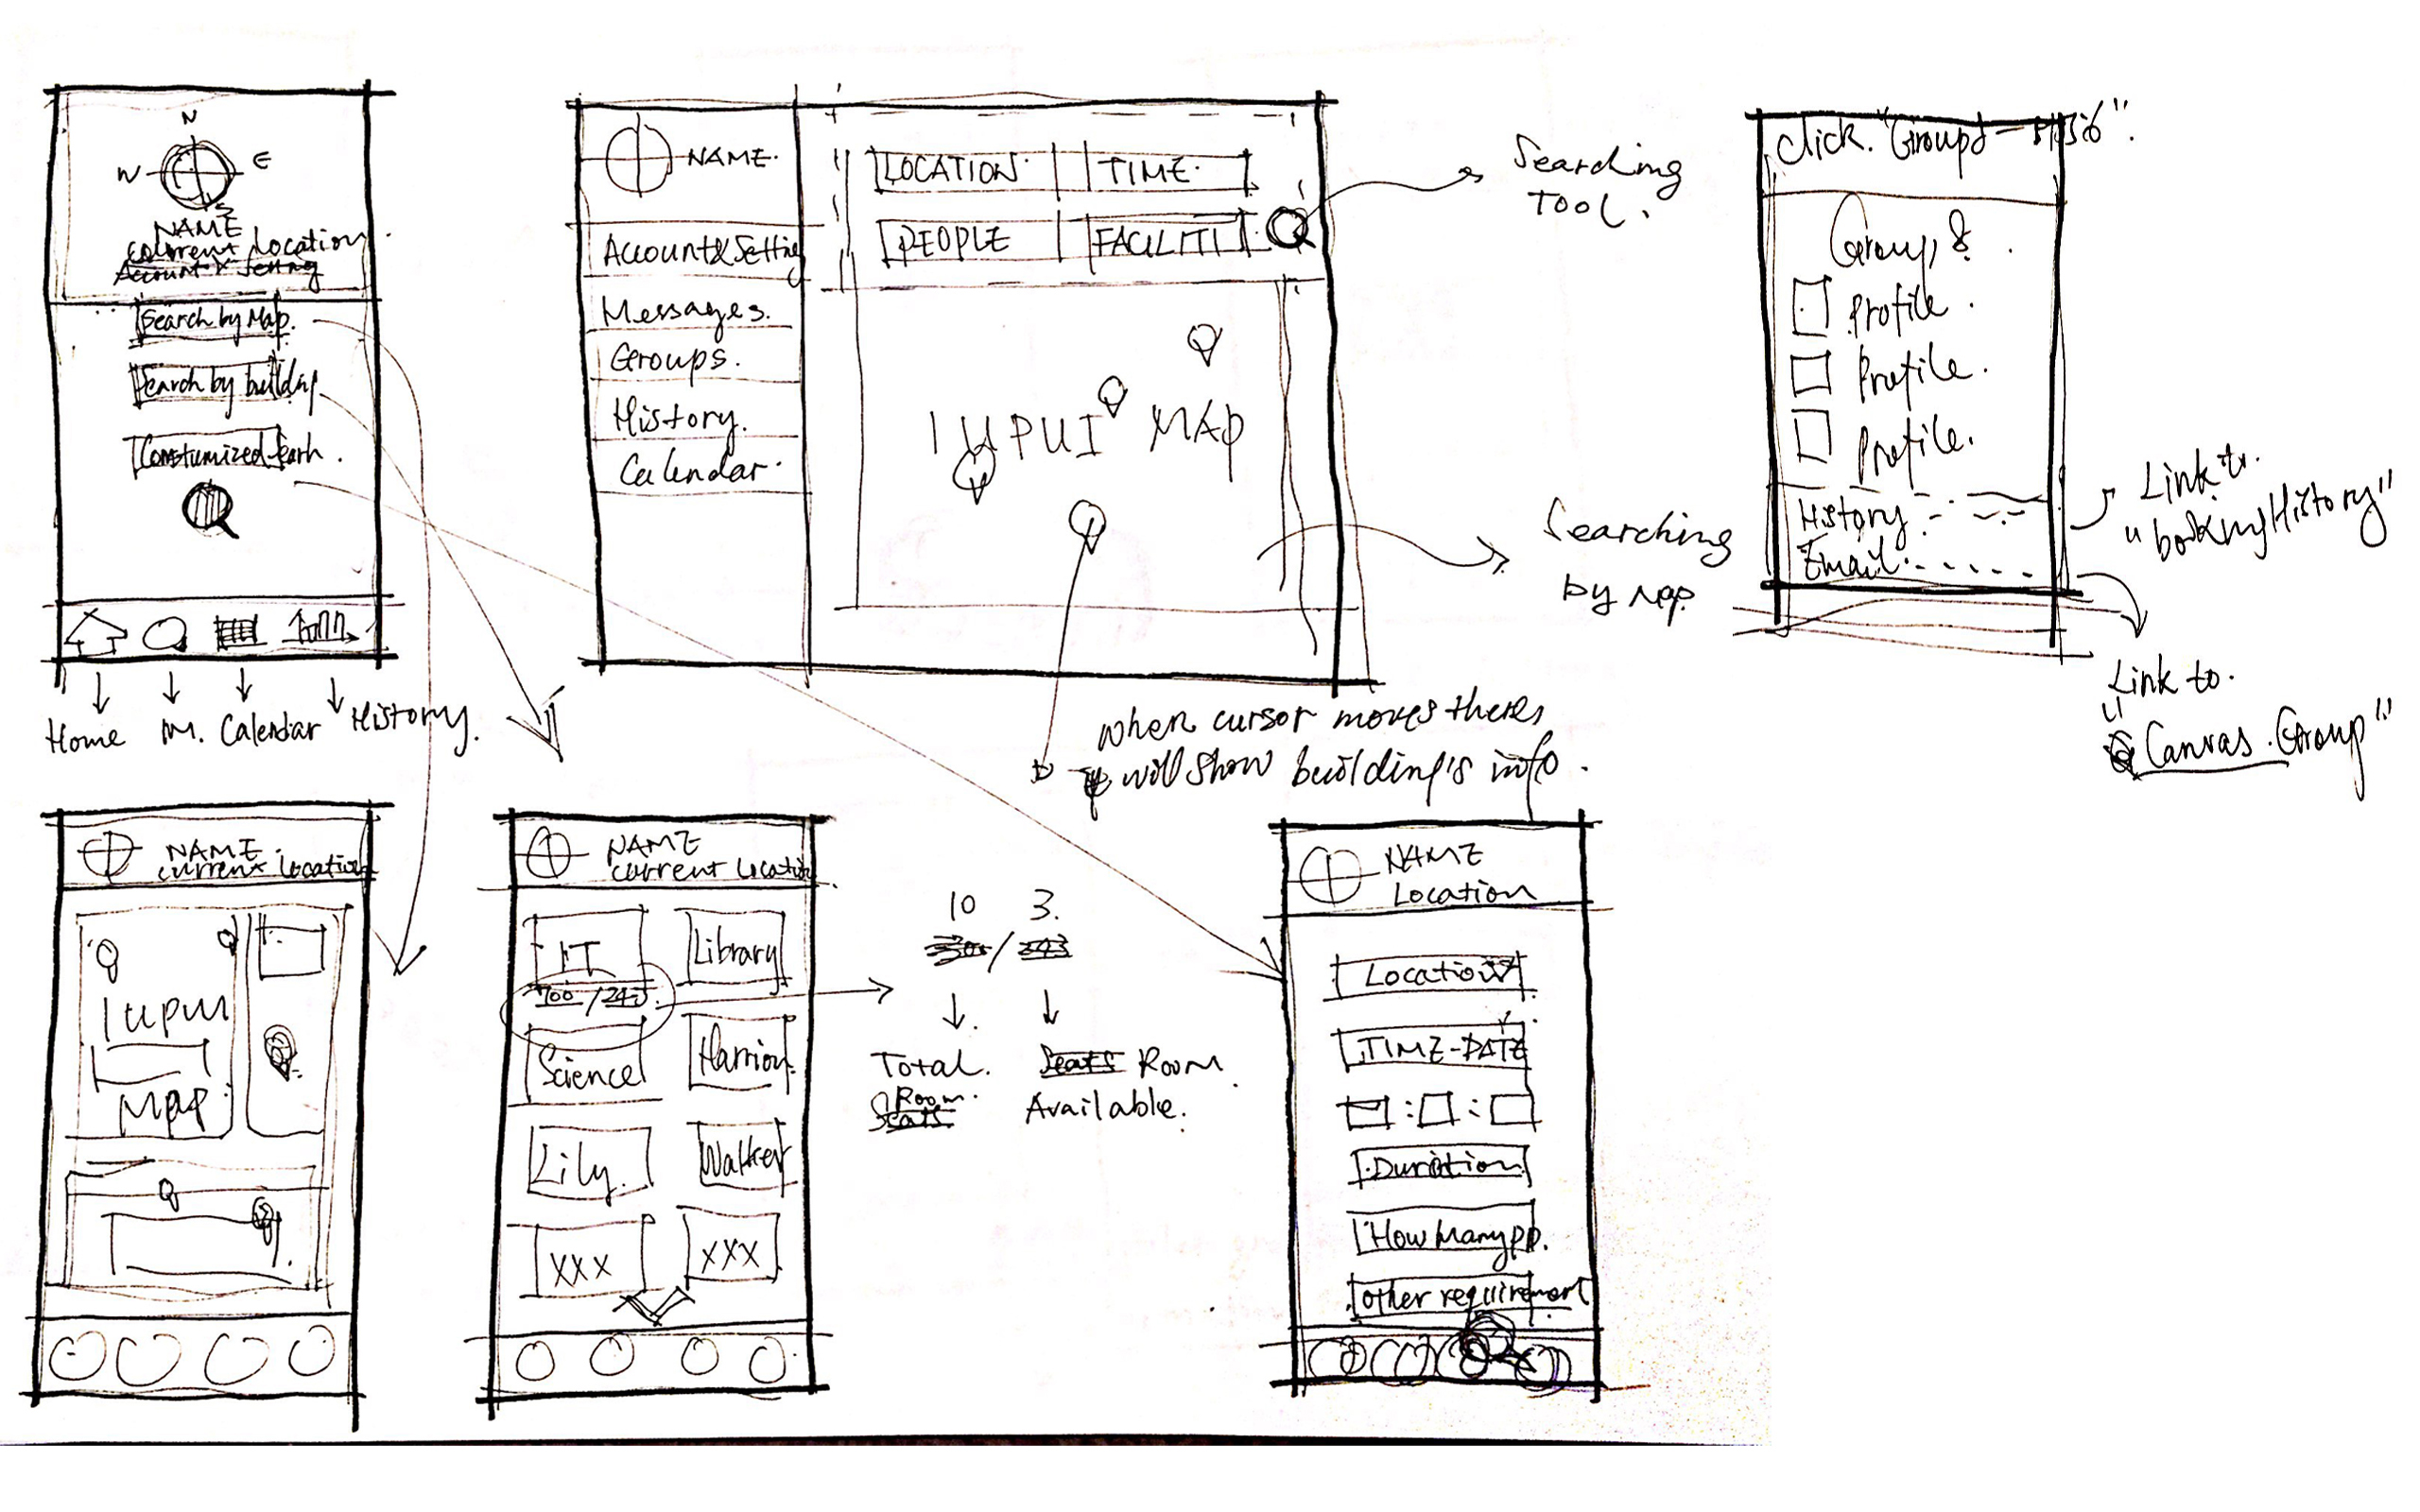 N
W
E
S
NAME
Current Location
Account & Setting
Search by Map.
Search by building.
Costumized Searh.
Home
M.
Calendar
History.
NAME.
Account & Setting
Messages.
Groups.
History.
Calendar.
LOCATION.
TIME.
PEOPLE
FACILITI
IUPUI MAP
Searching
TOOL.
Searching
by Map.
when cursor moves there,
will show building's info.
Click. "Groups
Group 8.
Profile.
Profile.
Profile.
History
Email.
Link to.
"bookingHistory"
Link to.
"Canvas Group"
NAME.
current Location
IUPUI
Map
NAME
current Location
IT
Library
700/243
Science
Lily.
Walker
XXX
XXX
10
3.
/
Total.
Room.
Seats
Seats Room.
Available.
NAME
Location
Location
TIME-DATE
: :
Duration
How Many pp.
other requirement